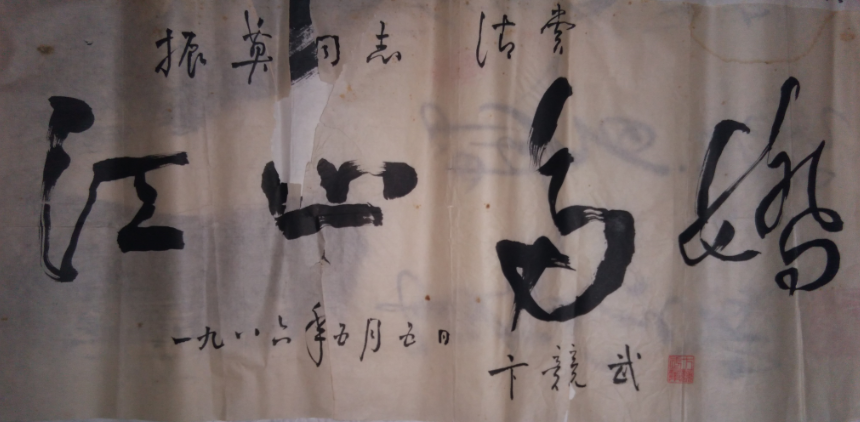 振英同志 沽赏
江山多娇
一九八六年五月五日
卞競武